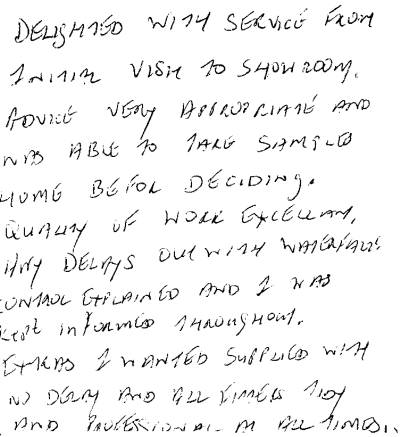 DELIGHTED WITH SERVICE FROM
INITIAL VISIT TO SHOWROOM.
ADVICE VERY APPROPRIATE AND
WAS ABLE TO TAKE SAMPLES
HOME BEFOR DECIDING.
QUALITY OF WORK EXCELLENT,
ANY DELAYS OUTWITH WATERFALLS
CONTROL EXPLAINED AND I WAS
KEPT INFORMED THROUGHOUT.
EXTRAS I WANTED SUPPLIED WITH
NO DELAY AND ALL TIDY
AND PROFESSIONAL AT ALL TIMES.